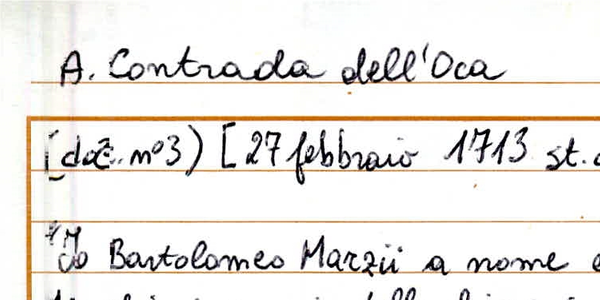 A. Contrada dell'Oca
(doc. nº3) [27 febbraio 1713 st.
"Io Bartolomeo Marzii a nome